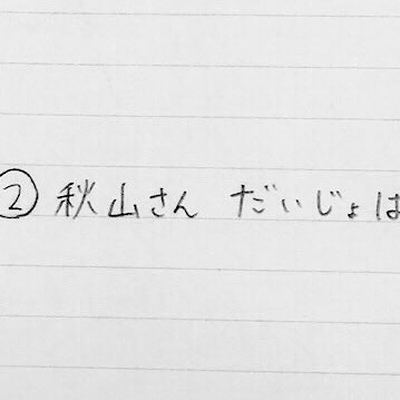 ② 秋山さん だいじょは